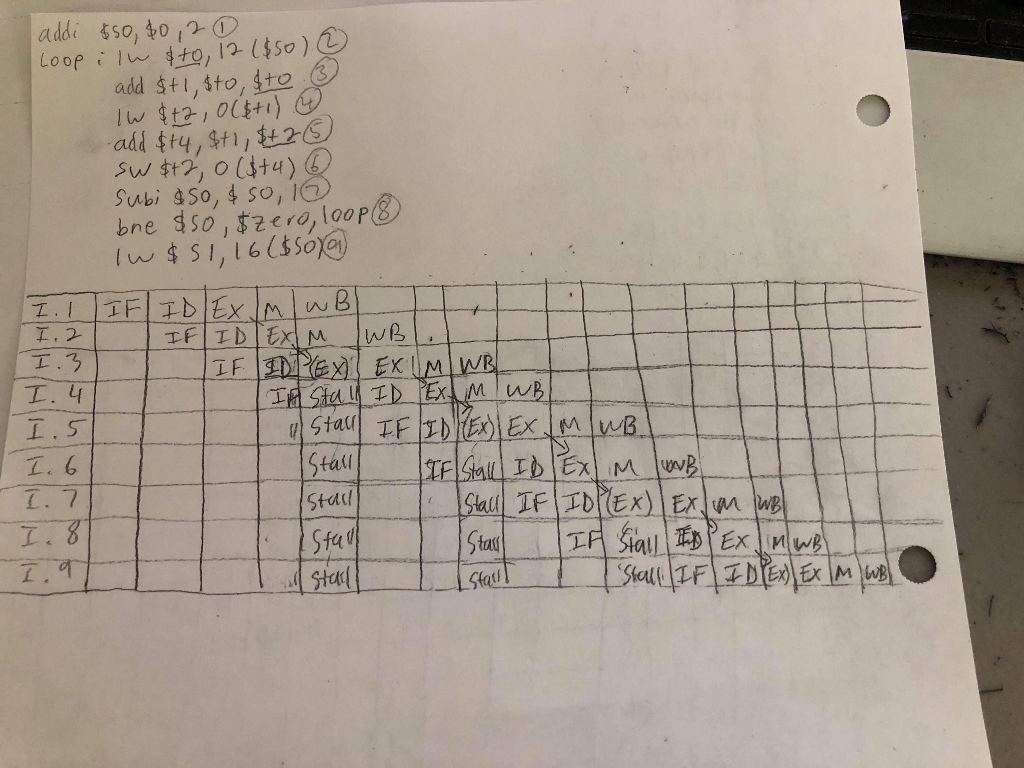 addi $S0, $0, 2 ①
Loop: lw $t0, 12 ($S0) ②
add $t1, $t0, $t0 ③
lw $t2, 0($t1) ④
add $t4, $t1, $t2 ⑤
sw $t2, 0($t4) ⑥
Subi $S0, $S0, 1 ⑦
bne $S0, $zero, loop ⑧
lw $S1, 16($S0) ⑨
I.1 IF ID EX M WB
I.2 IF ID EX M WB
I.3 IF ID (EX) EX M WB
I.4 IF Stall ID EX M WB
I.5 " Stall IF ID (EX) EX M WB
I.6 Stall IF Stall ID EX M WB
I.7 Stall Stall IF ID (EX) EX M WB
I.8 Stall Stall IF Stall ID EX M WB
I.9 " Stall Stall Stall IF ID (EX) EX M WB